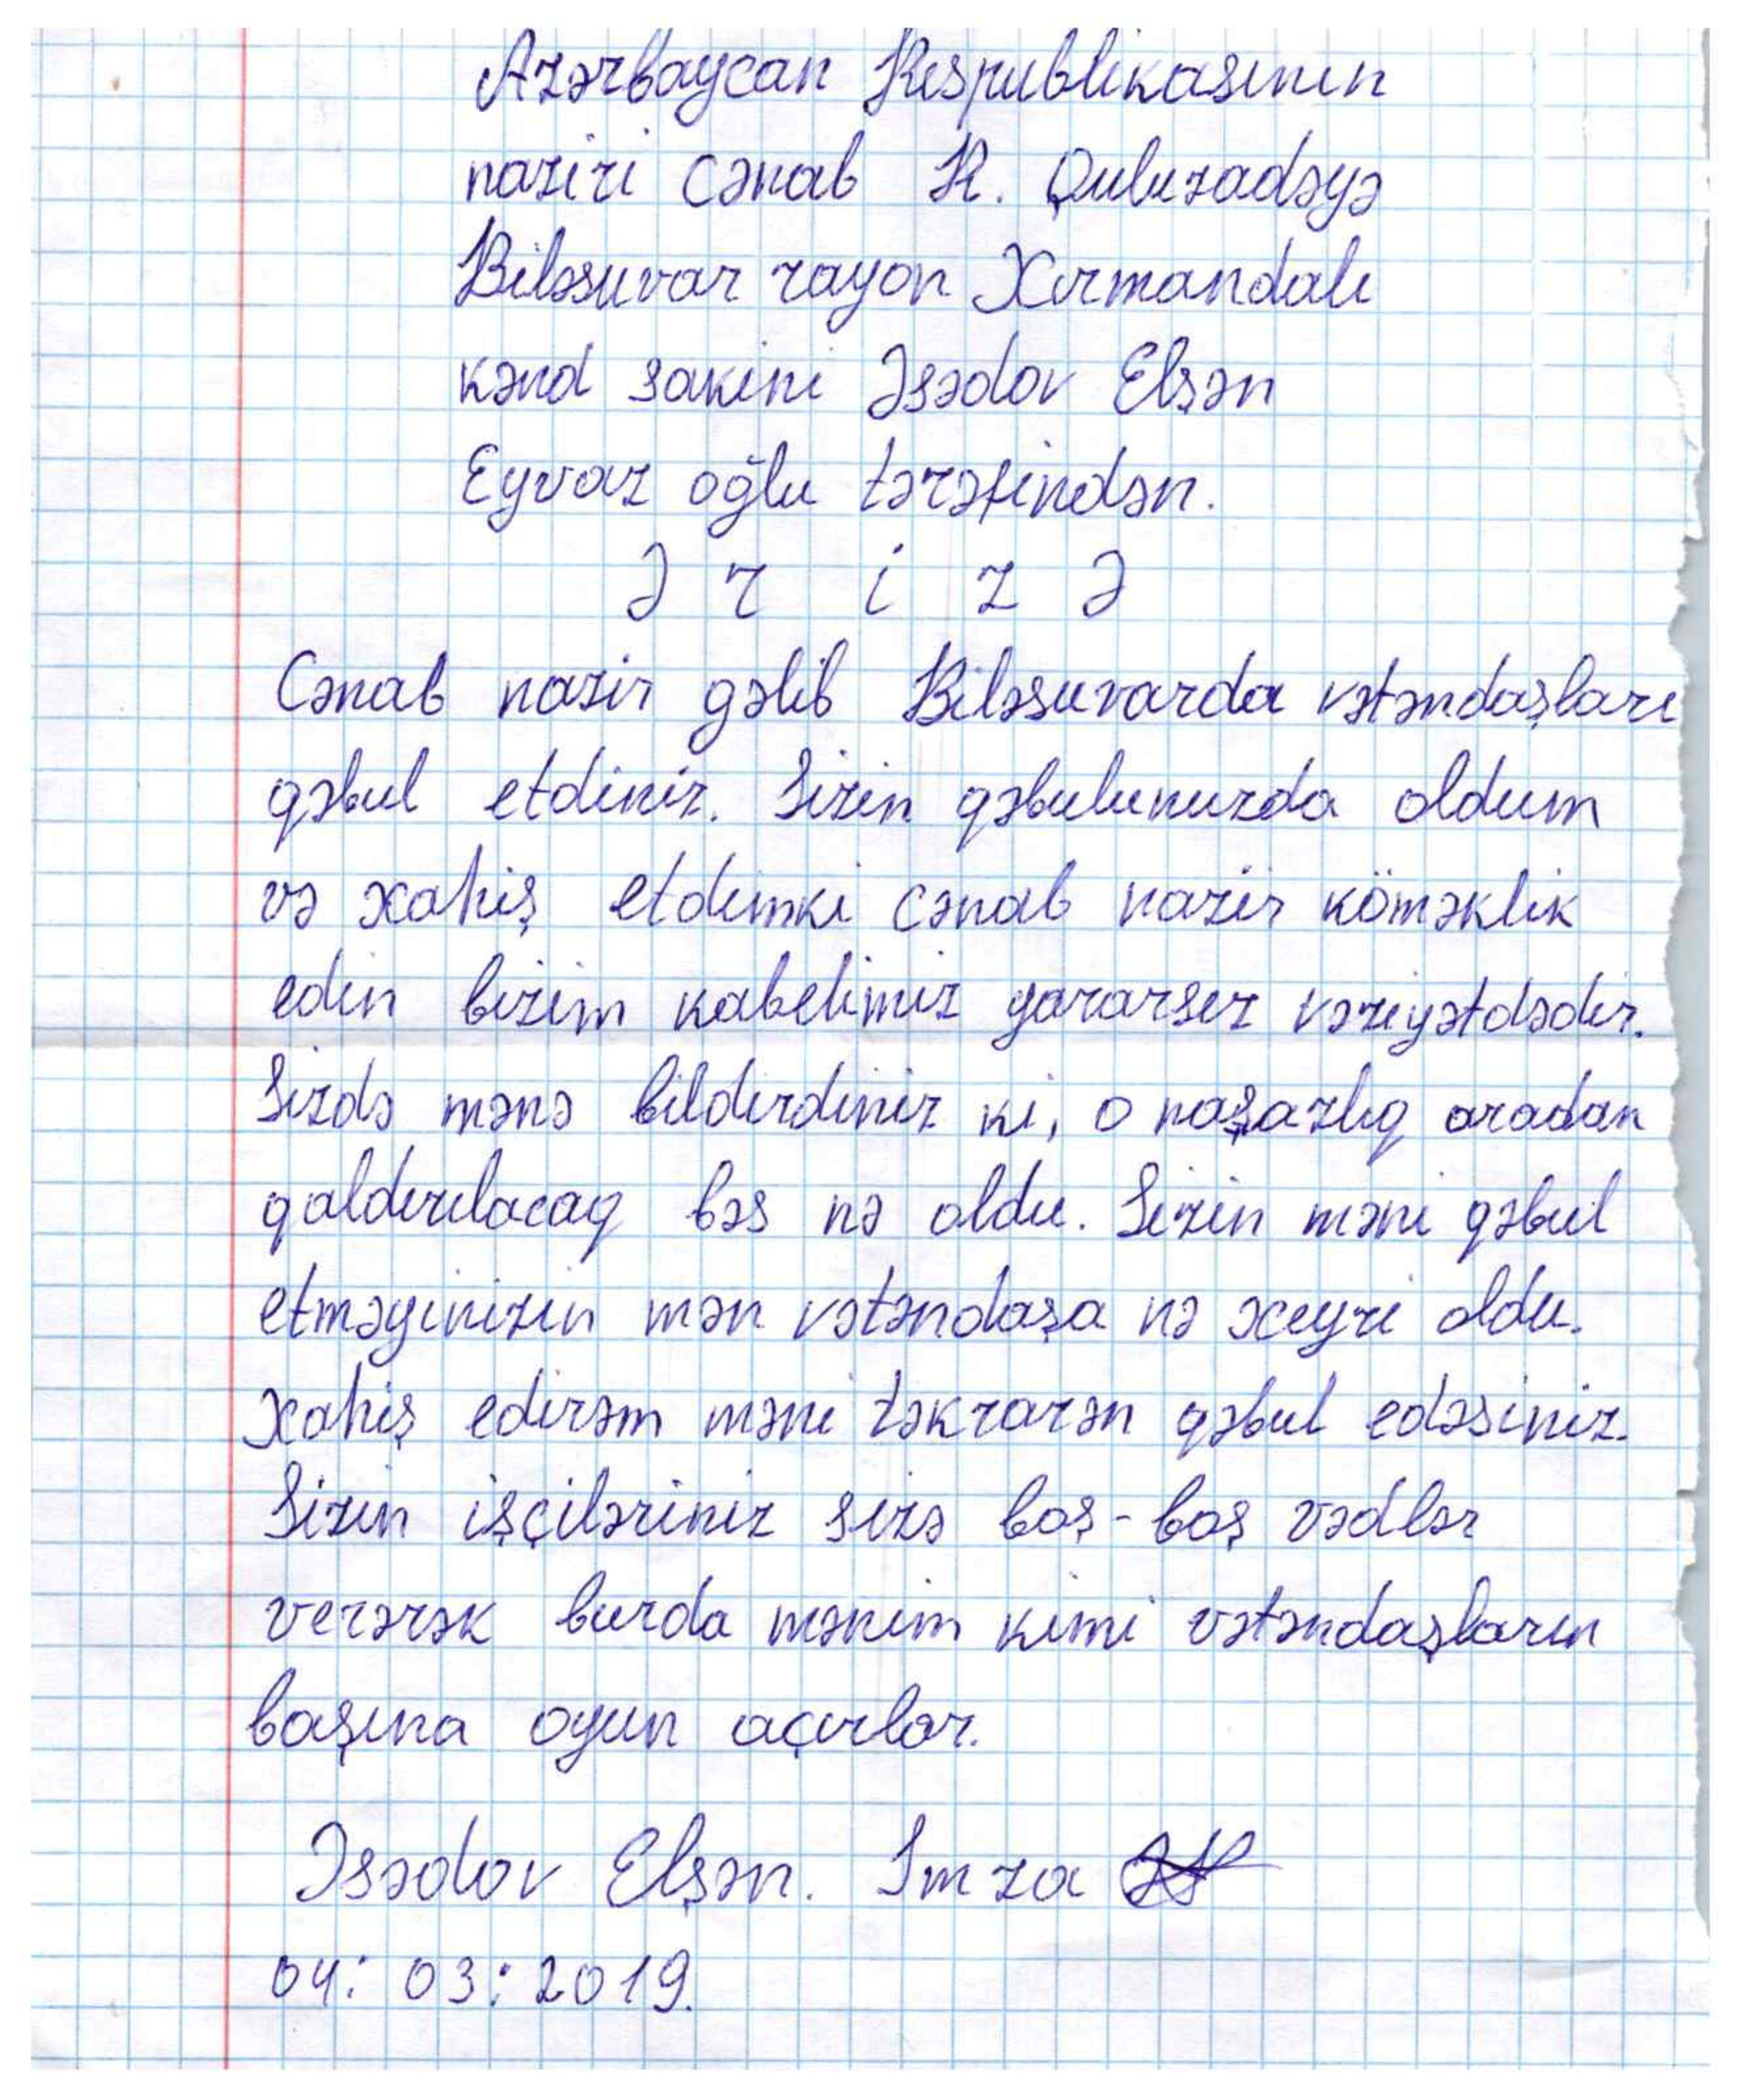 Azərbaycan Respublikasının
naziri Cənab R. Quluzadəyə
Biləsuvar rayon Xırmandalı
kənd sakini Əsədov Elşən
Eyvaz oğlu tərəfindən.
Ə r i z ə
Cənab nazir gəlib Biləsuvarda vətəndaşları
qəbul etdiniz. Sizin qəbulunuzda oldum
və xahiş etdimki cənab nazir köməklik
edin bizim kabelimiz yararsız vəziyətdədir.
Sizdə mənə bildirdiniz ki, o nasazlıq aradan
qaldırılacaq bəs nə oldu. Sizin məni qəbul
etməyinizin mən vətəndaşa nə xeyri oldu.
Xahiş edirəm məni təkrarən qəbul edəsiniz.
Sizin işçiləriniz sizə boş-boş vədlər
verərək burda mənim kimi vətəndaşların
başına oyun açırlar.
Əsədov Elşən. İmza
04: 03: 2019.